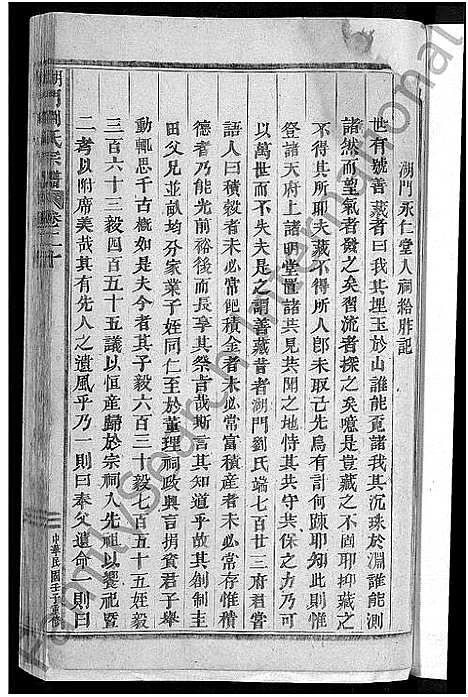 湖門永仁堂人祠給胙記
世有號善藏者曰我其埋玉於山誰能覔諸我其沉珠於淵誰能測
諸然而望氣者發之矣習流者探之矣噫是豈藏之不固耶抑藏之
不得其所耶夫藏不得所人卽未取己先烏有計何踈耶知此則惟
登諸天府上諸明堂置諸共見共聞之地恃其共守共保之力乃可
以萬世而不失夫是之謂善藏昔者湖門劉氏端七百廿三府君嘗
語人曰積穀者未必常飽積金者未必常富積産者未必常存惟積
德者乃能光前裕後而長享其祭吉哉斯言其知道乎故其創制主
田父兄並畝均分家業子姪同仁至於董理祠政與言捐貲君子舉
動輒思千古概如是夫今者其子毅六百三十毅七百五十五姪毅
三百六十三毅四百五十五議以恒産歸於宗祠入先祖以饗祀暨
二考以附席美哉其有先人之遺風乎乃一則曰奉父遺命一則曰
湖門劉氏宗譜
卷二十
中華民國壬子重修
FamilySearch International